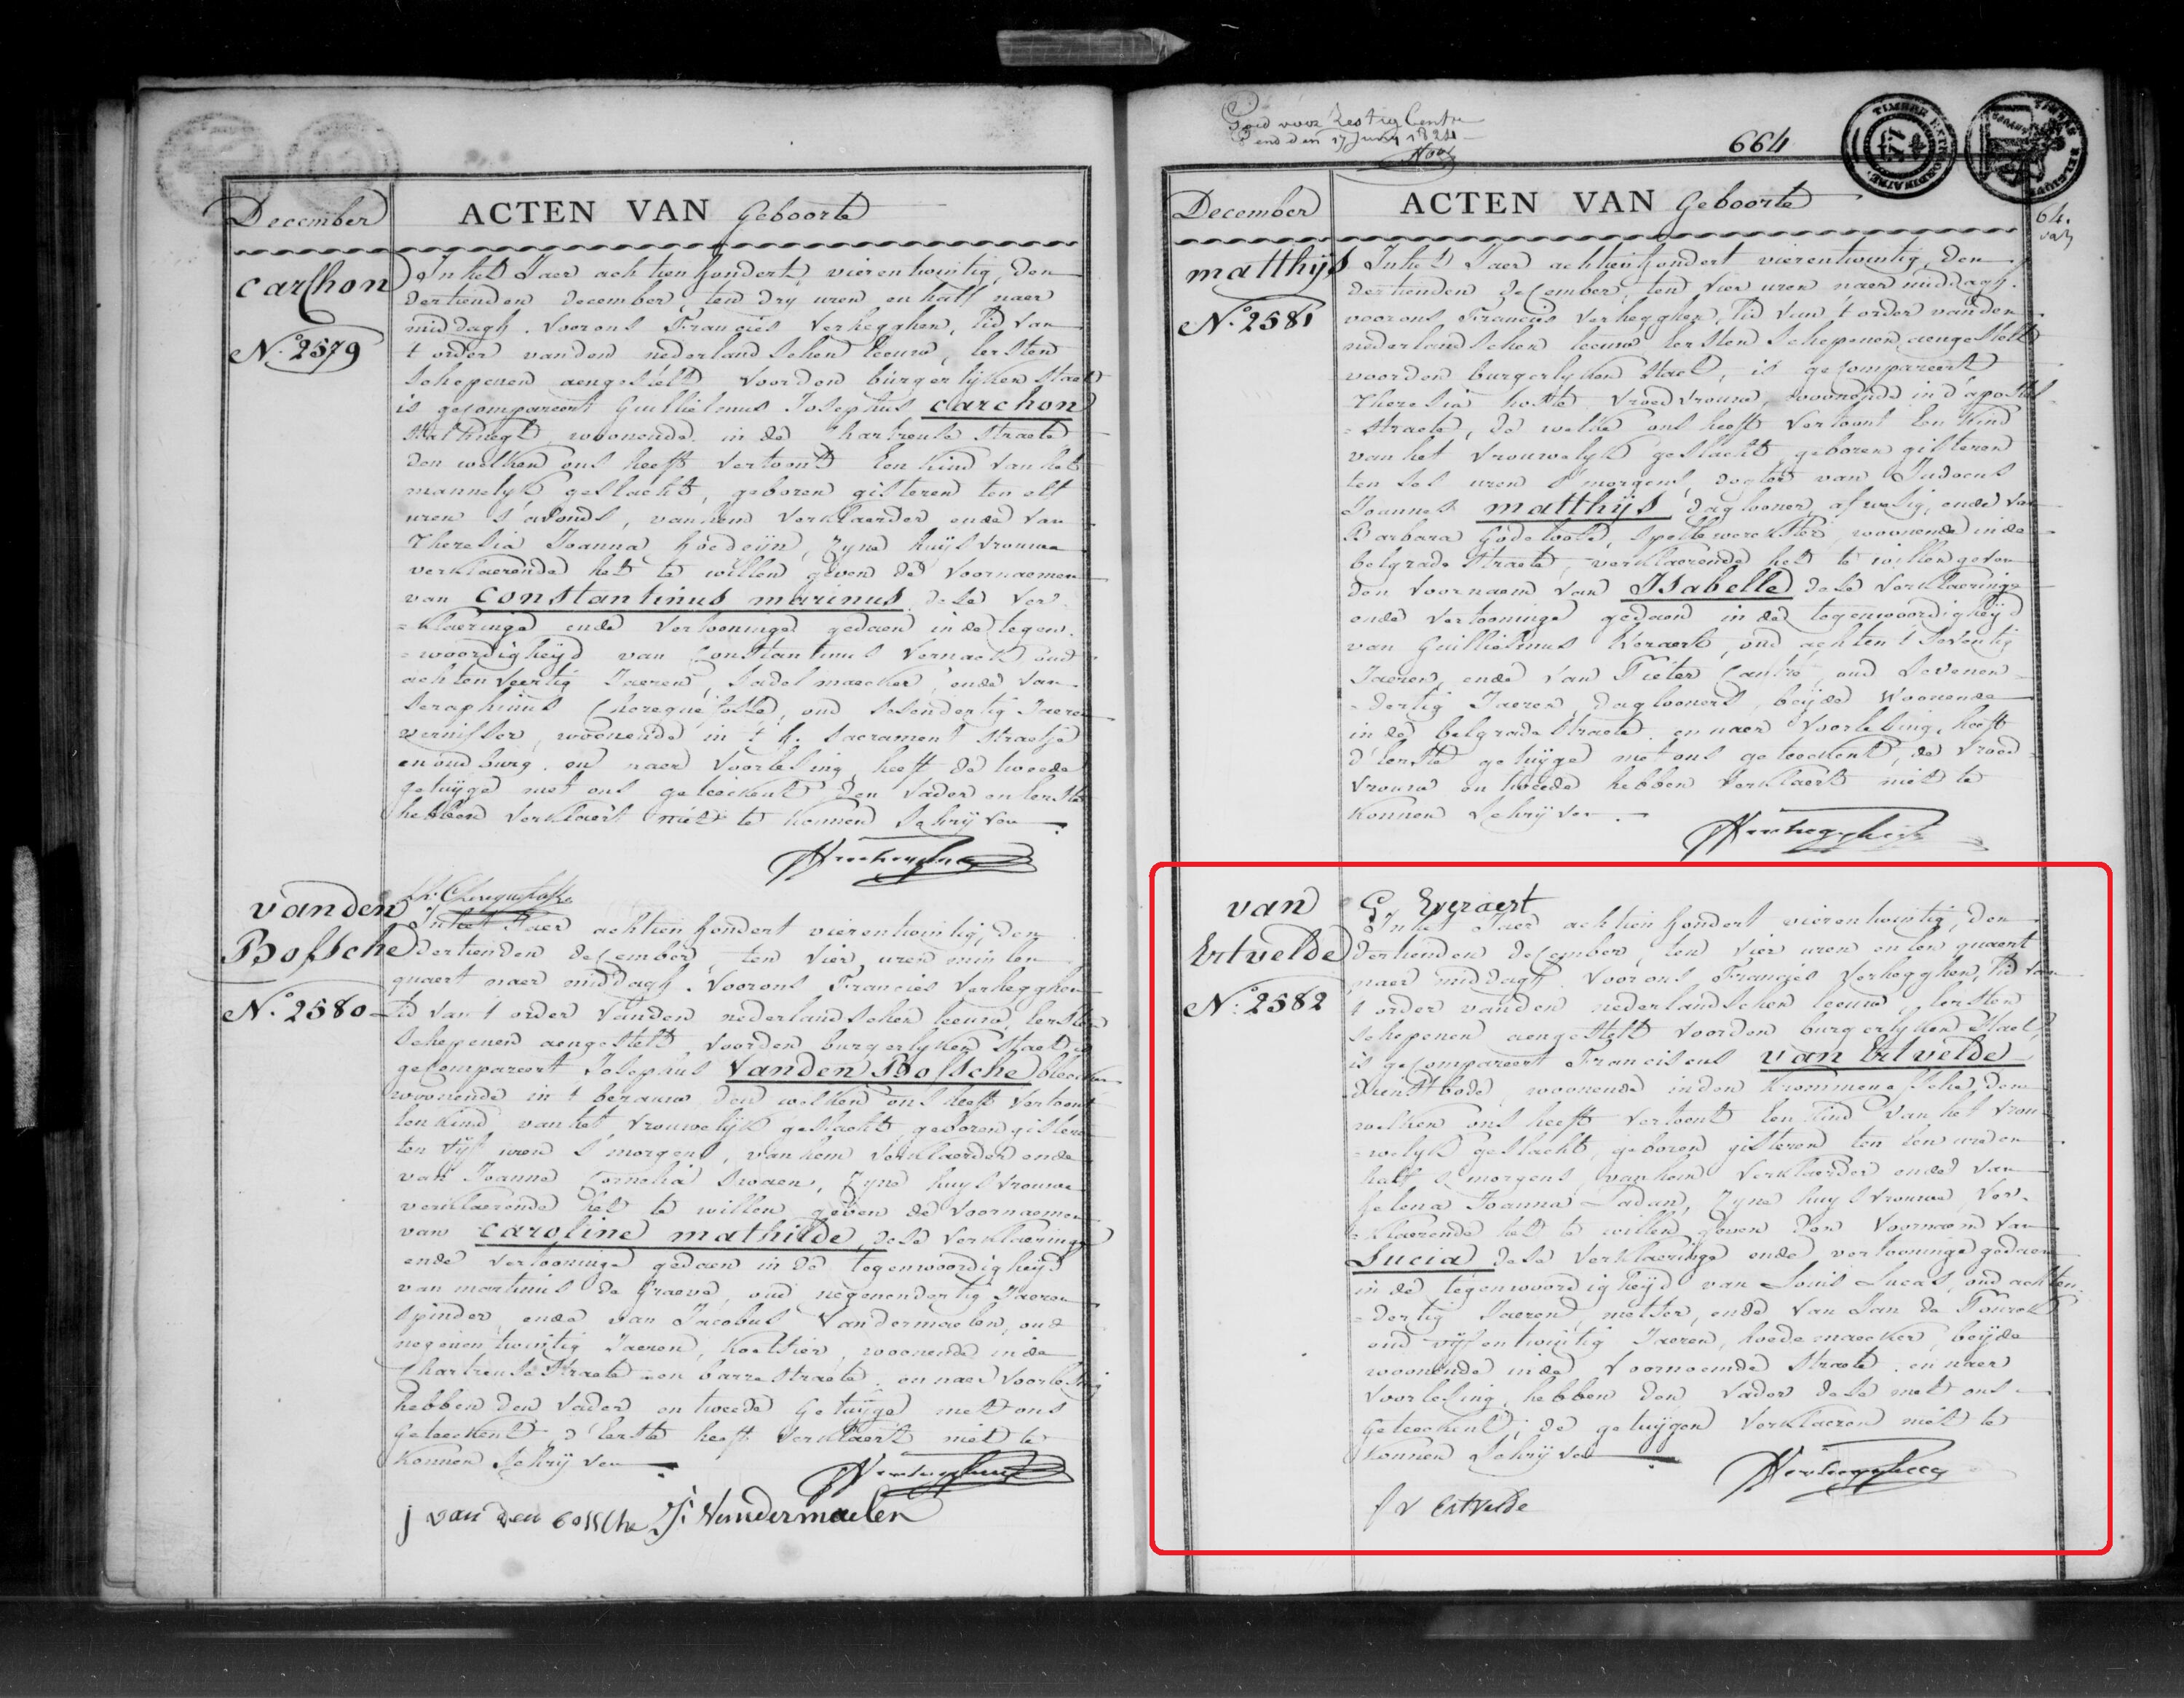 Goed voor Zestig Cents
Gend den 17 Juny 1824
664
December
ACTEN VAN Geboorte
Carchon
N.º 2579
In het Jaer achtien hondert vierentwintig, den
dertienden december, ten dry uren en half naer
middagh. Voor ons Francies Verhegghen, Lid van
t order vanden nederlandschen leeuw, eersten
schepenen aengestelt voor den burgerlyken staet
is gecompareert Guillielmus Josephus Carchon
Stalknegt, woonende in de Chartreuse straete
den welken ons heeft vertoont een kind van het
mannelyk geslacht, geboren gisteren ten elf
uren s'avonds, van hem verklaerder ende van
Theresia Joanna Goedeijn, zyne huysvrouwe
verklaerende het te willen geven de voornaemen
van Constantinus marinus, dese ver-
=klaeringe ende vertooninge gedaen in de tegen-
=woordigheyd van Constantinus Vernaet oud
acht en veertig Jaeren, sadelmaeker, ende van
Seraphinus Cherequefosse, oud sesendertig Jaeren
vernisser, woonende in 't h. Sacrament straetje
en oudburg. en naer voorlesing heeft de tweede
getuyge met ons geteeckent den vader en eerste
hebben verklaert niet te konnen schryven.
Verhegghen
vanden
Bossche
N.º 2580
In het Jaer achtien hondert vierentwintig, den
dertienden december, ten vier uren min een
quaert naer middagh. Voor ons Francies Verhegghen
Lid van t order vanden nederlandschen leeuw, eersten
schepenen aengestelt voor den burgerlyken staet is
gecompareert Josephus Vanden Bossche bleeker
woonende in t berauw, den welken ons heeft vertoont
een kind van het vrouwelyk geslacht, geboren gisteren
ten vyf uren s'morgens, van hem verklaerder ende
van Joanna Cornelia Swaen, zyne huysvrouwe
verklaerende het te willen geven de voornaemen
van Caroline mathilde, dese verklaeringe
ende vertooninge gedaen in de tegenwoordigheyd
van martinus de Graeve, oud negenendertig Jaeren
spinder, ende van Jacobus Vandermaelen, oud
negenentwintig Jaeren, woonende in de
Chartreuse straete en barrestraete. en naer voorlesing
hebben den vader en tweede getuyge met ons
geteeckent, d'eerste heeft verklaert niet te
konnen schryven.
Verhegghen
j van den bossche J. Vandermaelen
December
ACTEN VAN Geboorte
matthijs
N.º 2581
In het Jaer achtien hondert vierentwintig, den
dertienden december, ten vier uren naer middagh.
voor ons Francies Verhegghen, Lid van 't order vanden
nederlandschen leeuw eersten schepenen aengestelt
voor den burgerlyken staet, is gecompareert
Theresia hoste vroedvrouw, woonende in d'apostel
=straete, de welke ons heeft vertoont een kind
van het vrouwelyk geslacht, geboren gisteren
ten ses uren s'morgens, dogter van Judocus
Joannes matthijs, daglooner, afwesig, ende van
Barbara Godevoole, spellewerckster, woonende in de
belgrade straete, verklaerende het te willen geven
den voornaem van Isabelle dese verklaeringe
ende vertooninge gedaen in de tegenwoordigheyd
van Guillielmus Everaert, oud acht en t'seventig
Jaeren, ende van Pieter Cantré, oud sevenen
=dertig Jaeren, daglooners, beyde woonende
in de belgrade straete. en naer voorlesing, heeft
d'eerste getuyge met ons geteeckent, de vroed
vrouw en tweede hebben verklaert niet te
konnen schryven.
Verhegghen
G. Everaert
van
Ertvelde
N.º 2582
In het Jaer achtien hondert vierentwintig, den
dertienden december, ten vier uren en een quaert
naer middagh. Voor ons Francies Verhegghen, Lid van
t order vanden nederlandschen leeuw, eersten
schepenen aengestelt voor den burgerlyken staet,
is gecompareert Franciscus van Ertvelde
dienstbode, woonende in den krommen essche, den
welken ons heeft vertoont een kind van het vrou-
=welyk geslacht, geboren gisteren ten een ure en
half s'morgens, van hem verklaerder ende van
helena Joanna Ladan, zyne huysvrouwe, ver-
=klaerende het te willen geven den voornaem van
Lucia dese verklaeringe ende vertooninge gedaen
in de tegenwoordigheyd van Louis Lucas, oud achten
=dertig Jaeren, metser, ende van Jan de
oud vyfentwintig Jaeren, hoedemaecker, beyde
woonende in de voornoemde straete. en naer
voorlesing, hebben den vader dese met ons
geteeckent; de getuygen verklaeren niet te
konnen schryven
Verhegghen
f v Ertvelde